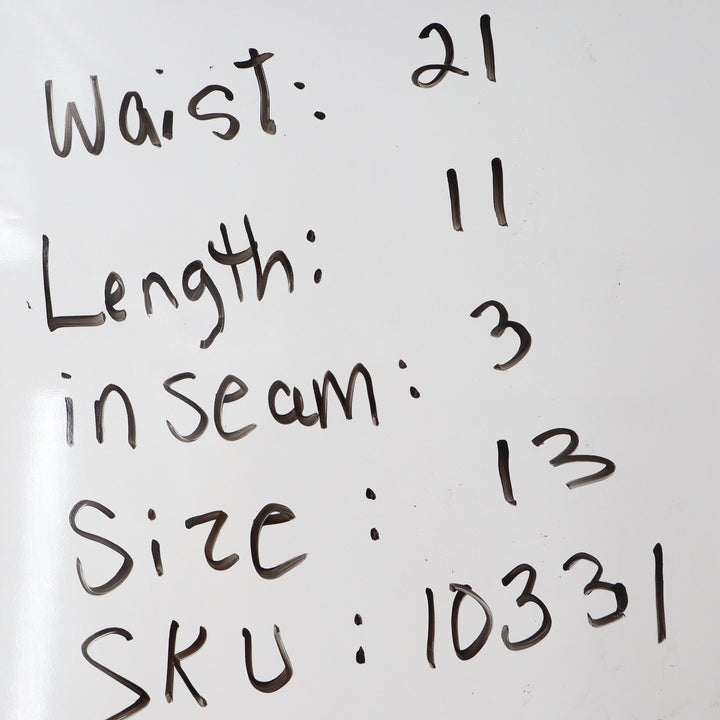 Waist: 21
Length: 11
inseam: 3
Size: 13
SKU: 10331